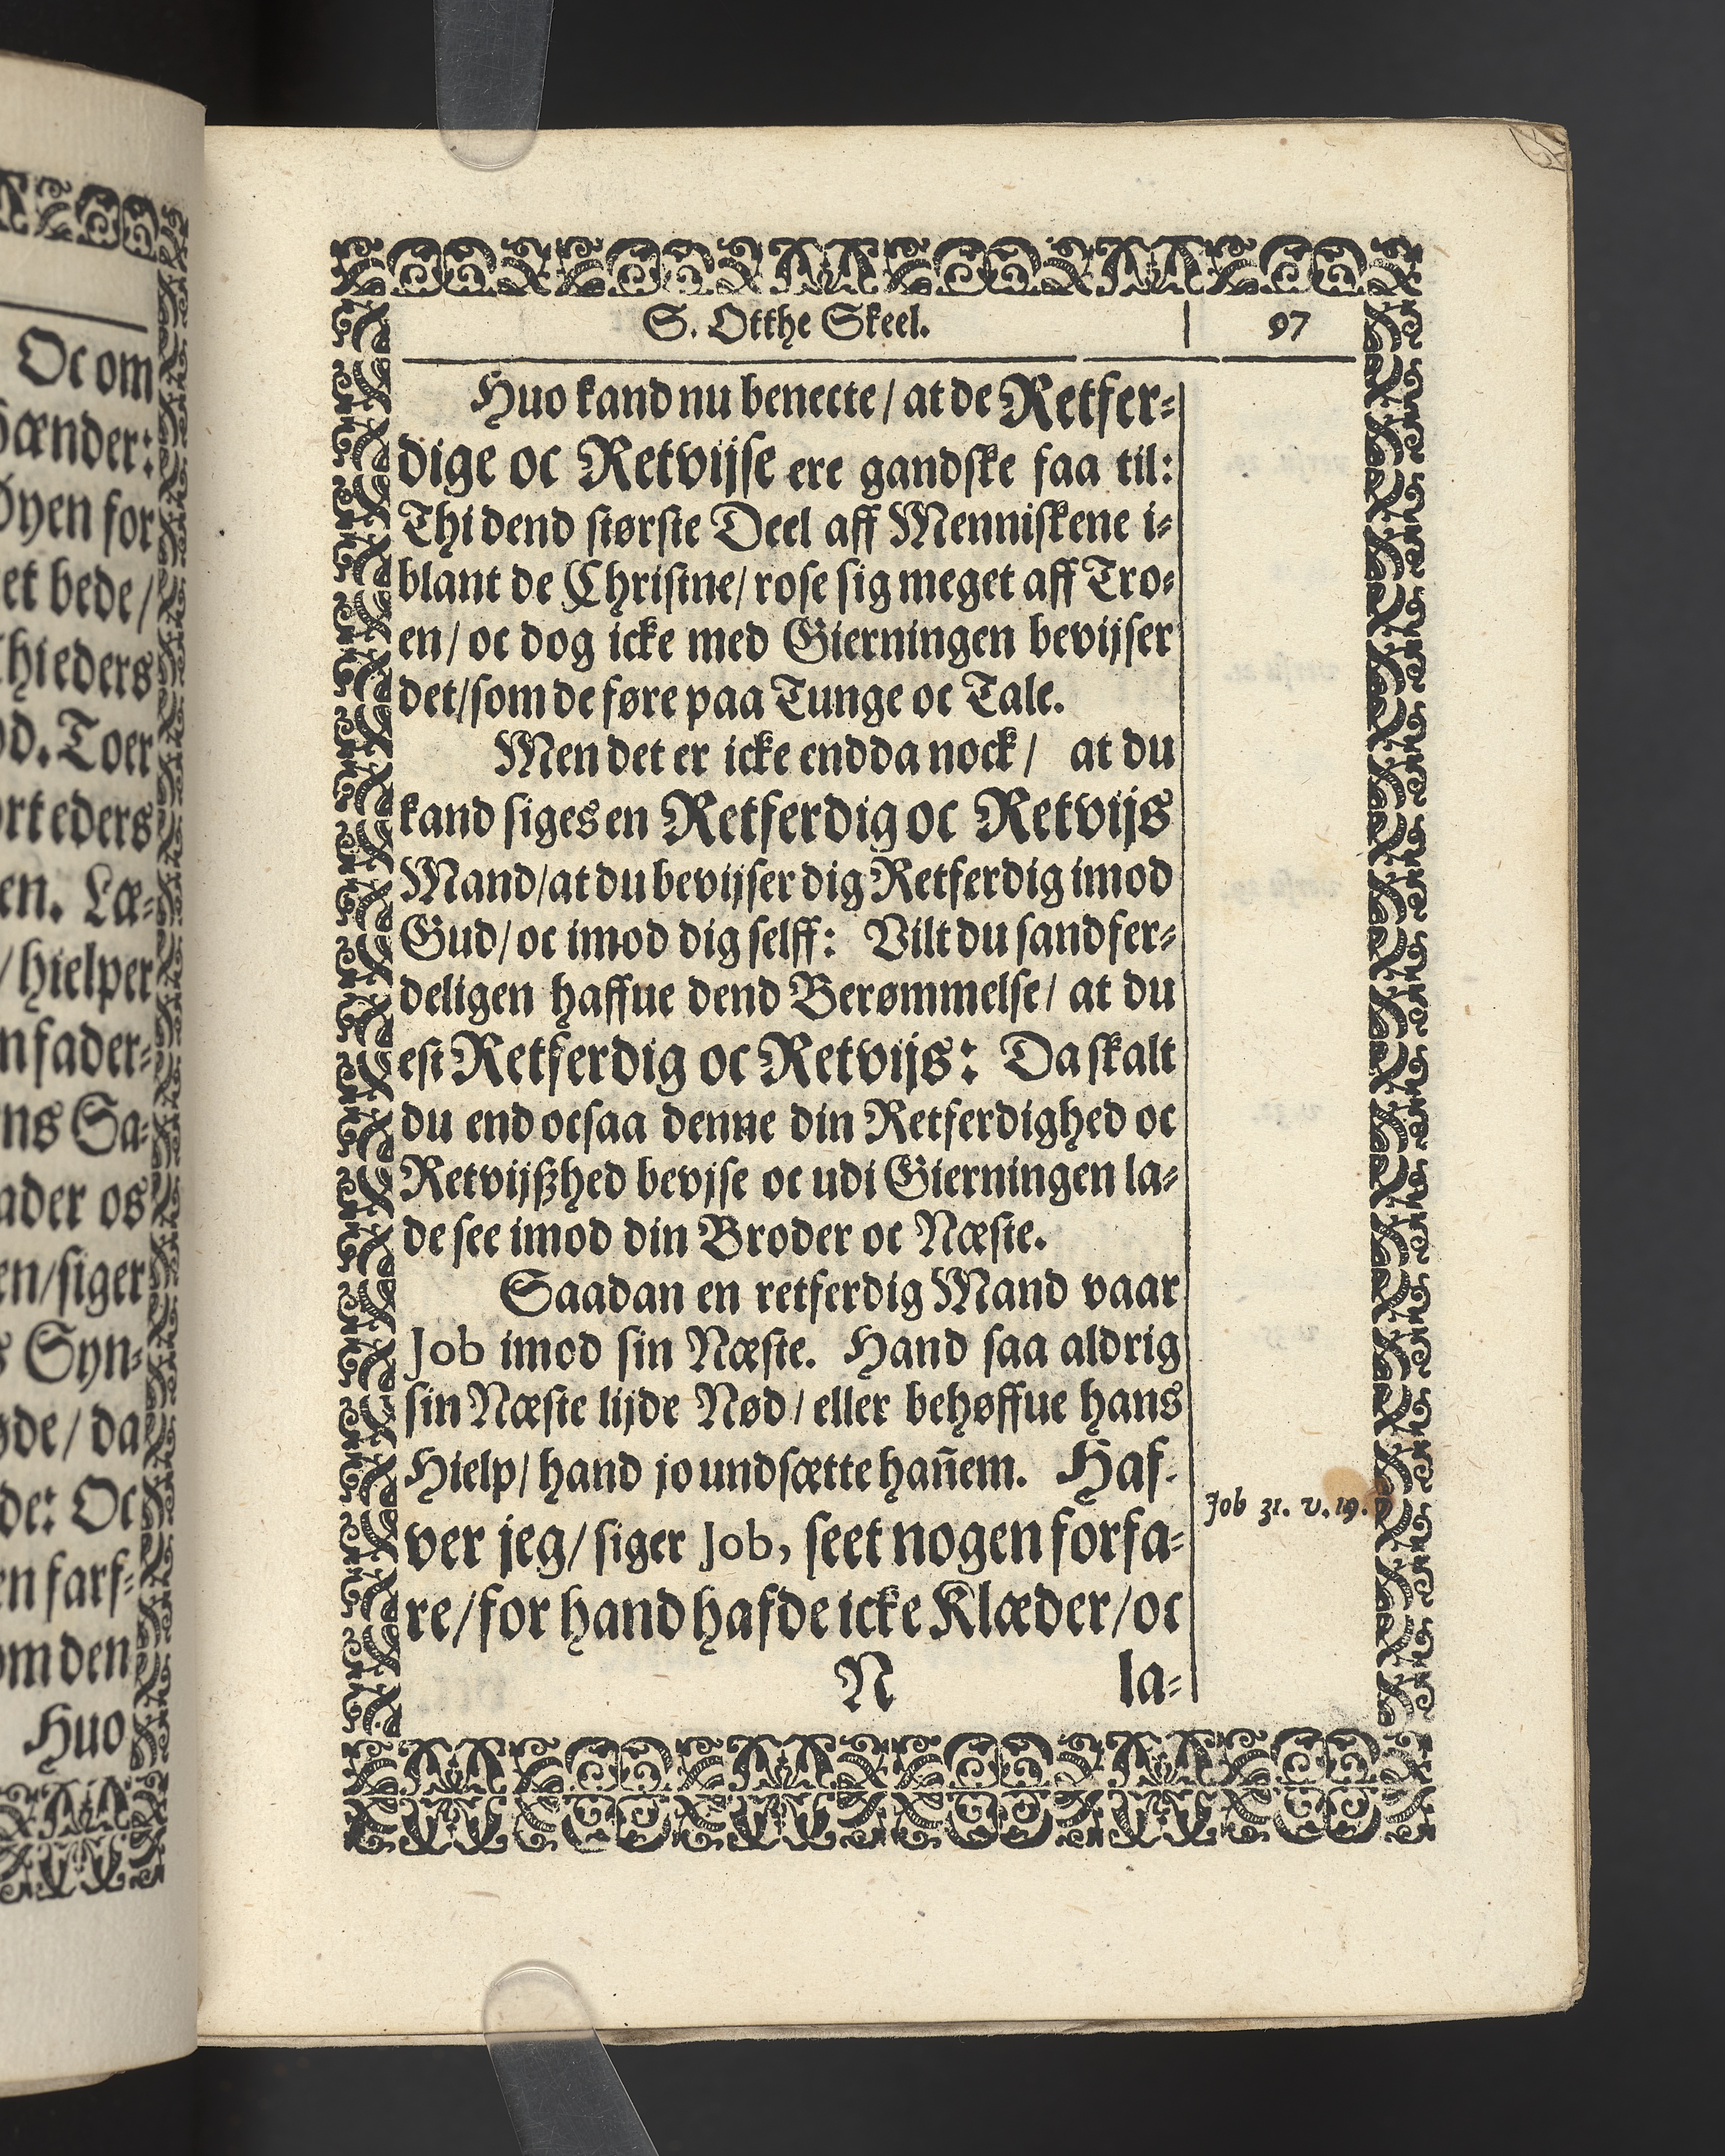 Oc om
hænder:
Øyen for
et bede/
Thi eders
od. Toer
ort eders
en. Læ-
/ hielper
n fader-
ns Sa-
ader os
en/siger
s Syn-
øde/ da
de: Oc
en farf-
om den
Huo
S. Otthe Skeel.
97
Huo kand nu benecte / at de Retfer-
dige oc Retvijse ere gandske faa til:
Thi dend største Deel aff Menniskene i-
blant de Christne/ rose sig meget aff Tro-
en/ oc dog icke med Gierningen bevijser
det/som de føre paa Tunge oc Tale.
Men det er icke endda nock / at du
kand siges en Retferdig oc Retvijs
Mand/at du bevijser dig Retferdig imod
Gud/ oc imod dig selff: Vilt du sandfer-
deligen haffue dend Berømmelse/ at du
est Retferdig oc Retvijs: Da skalt
du end ocsaa denne din Retferdighed oc
Retvijßhed bevjse oc udi Gierningen la-
de see imod din Broder oc Næste.
Saadan en retferdig Mand vaar
Job imod sin Næste. Hand saa aldrig
sin Næste lijde Nød / eller behøffue hans
Hielp/ hand jo undsætte hañem. Haf-
Job 31. v. 19.
ver jeg/ siger Job, seet nogen forfa-
re/for hand hafde icke Klæder/oc
N
la-